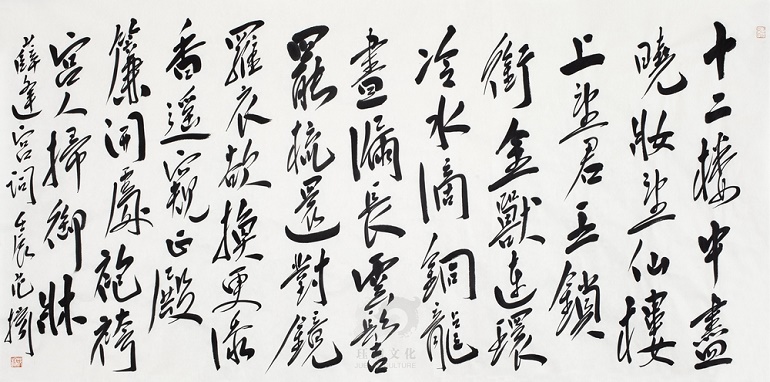 十二樓中盡
曉妝望仙樓
上望君王鎖
銜金獸連環
冷水滴銅龍
晝漏長雲髻
罷梳還對鏡
羅衣欲換更添
香遥窺正殿
簾開處袍袴
宮人掃御牀
薛逢宮詞 壬辰 范
文化
CULTURE